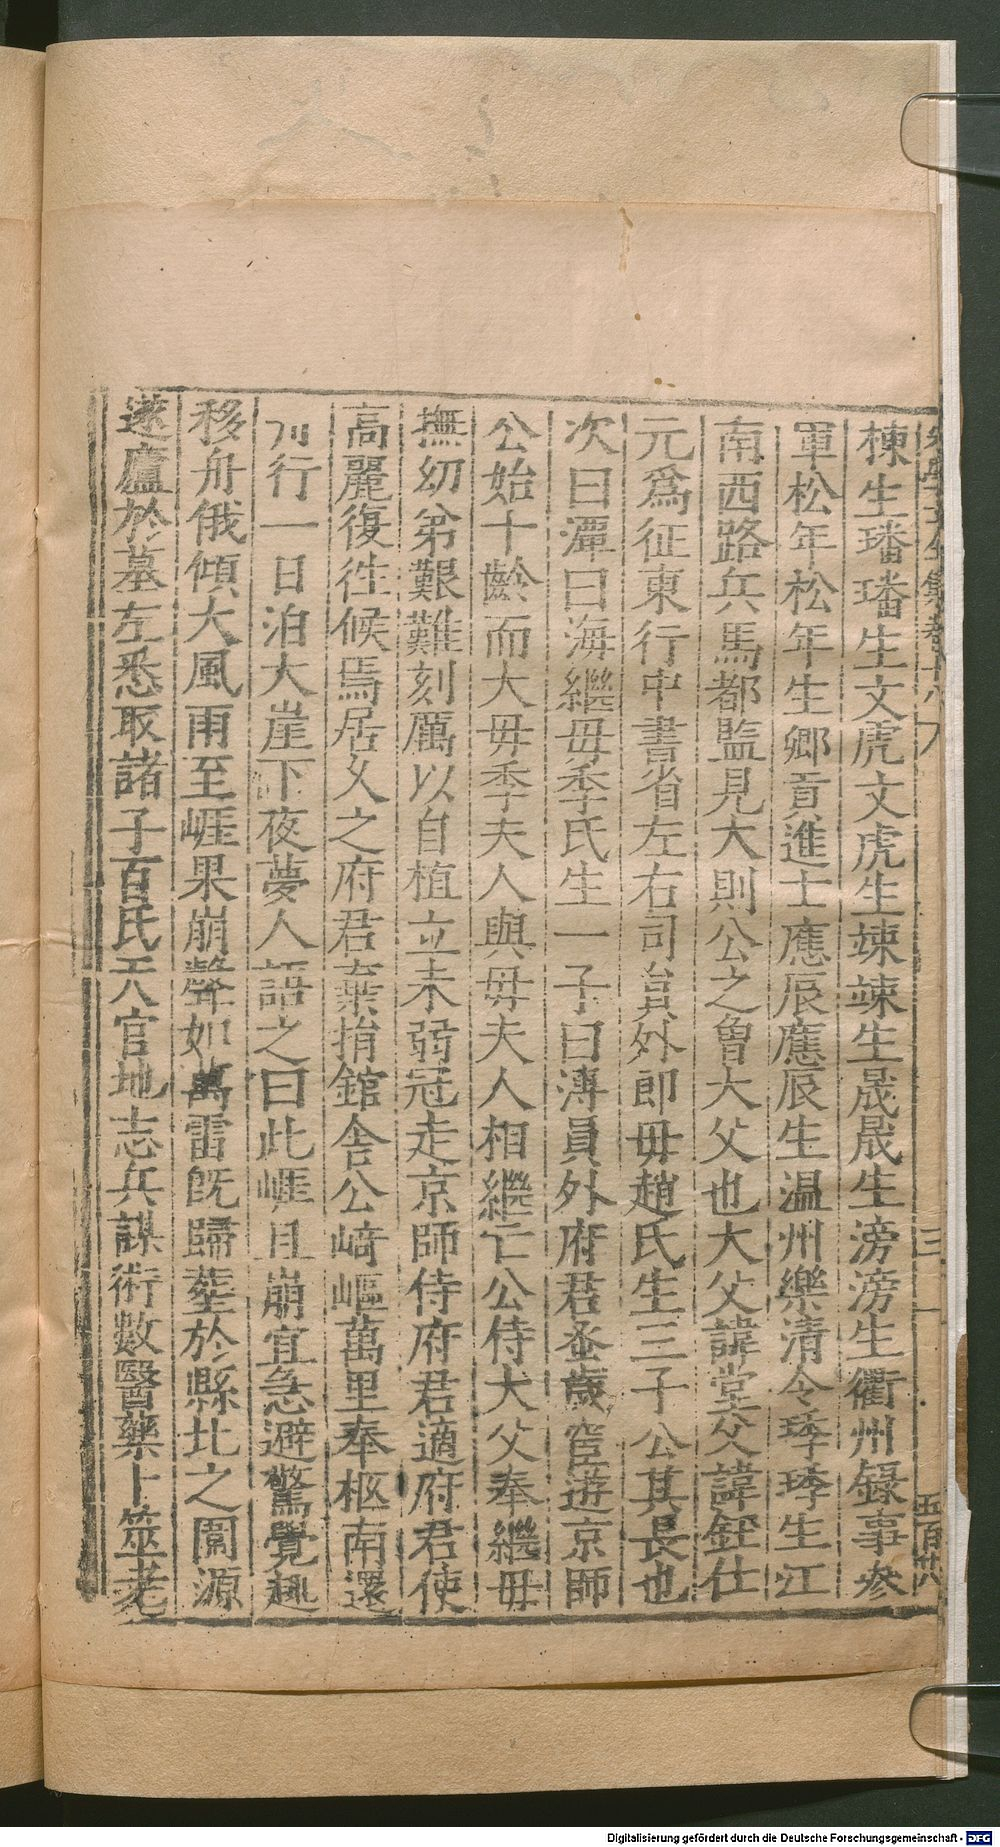 棟生璠璠生文虎文虎生竦竦生晟晟生滂滂生衢州錄事參
軍松年松年生鄉貢進士應辰應辰生温州樂清令琇琇生江
南西路兵馬都監見大則公之曾大父也大父諱堂父諱鉦仕
元爲征東行中書省左右司員外郎毋趙氏生三子公其長也
次曰潭曰海繼毋季氏生一子曰溥員外府君蚤歲宦遊京師
公始十齡而大毋季夫人與毋夫人相繼亡公侍大父奉繼毋
撫幼弟艱難刻厲以自植立未弱冠走京師侍府君適府君使
高麗復徃候焉居久之府君棄捐館舍公﨑嶇萬里奉柩南還
行一日泊大崖下夜夢人語之曰此崕且崩宜急避驚覺趣
移舟俄傾大風雨至崕果崩聲如萬雷旣歸塟於縣北之圍源
遂廬於墓左悉取諸子百氏天官地志兵謀術數醫藥卜筮老
三
五百廿八
Digitalisierung gefördert durch die Deutsche Forschungsgemeinschaft - DFG